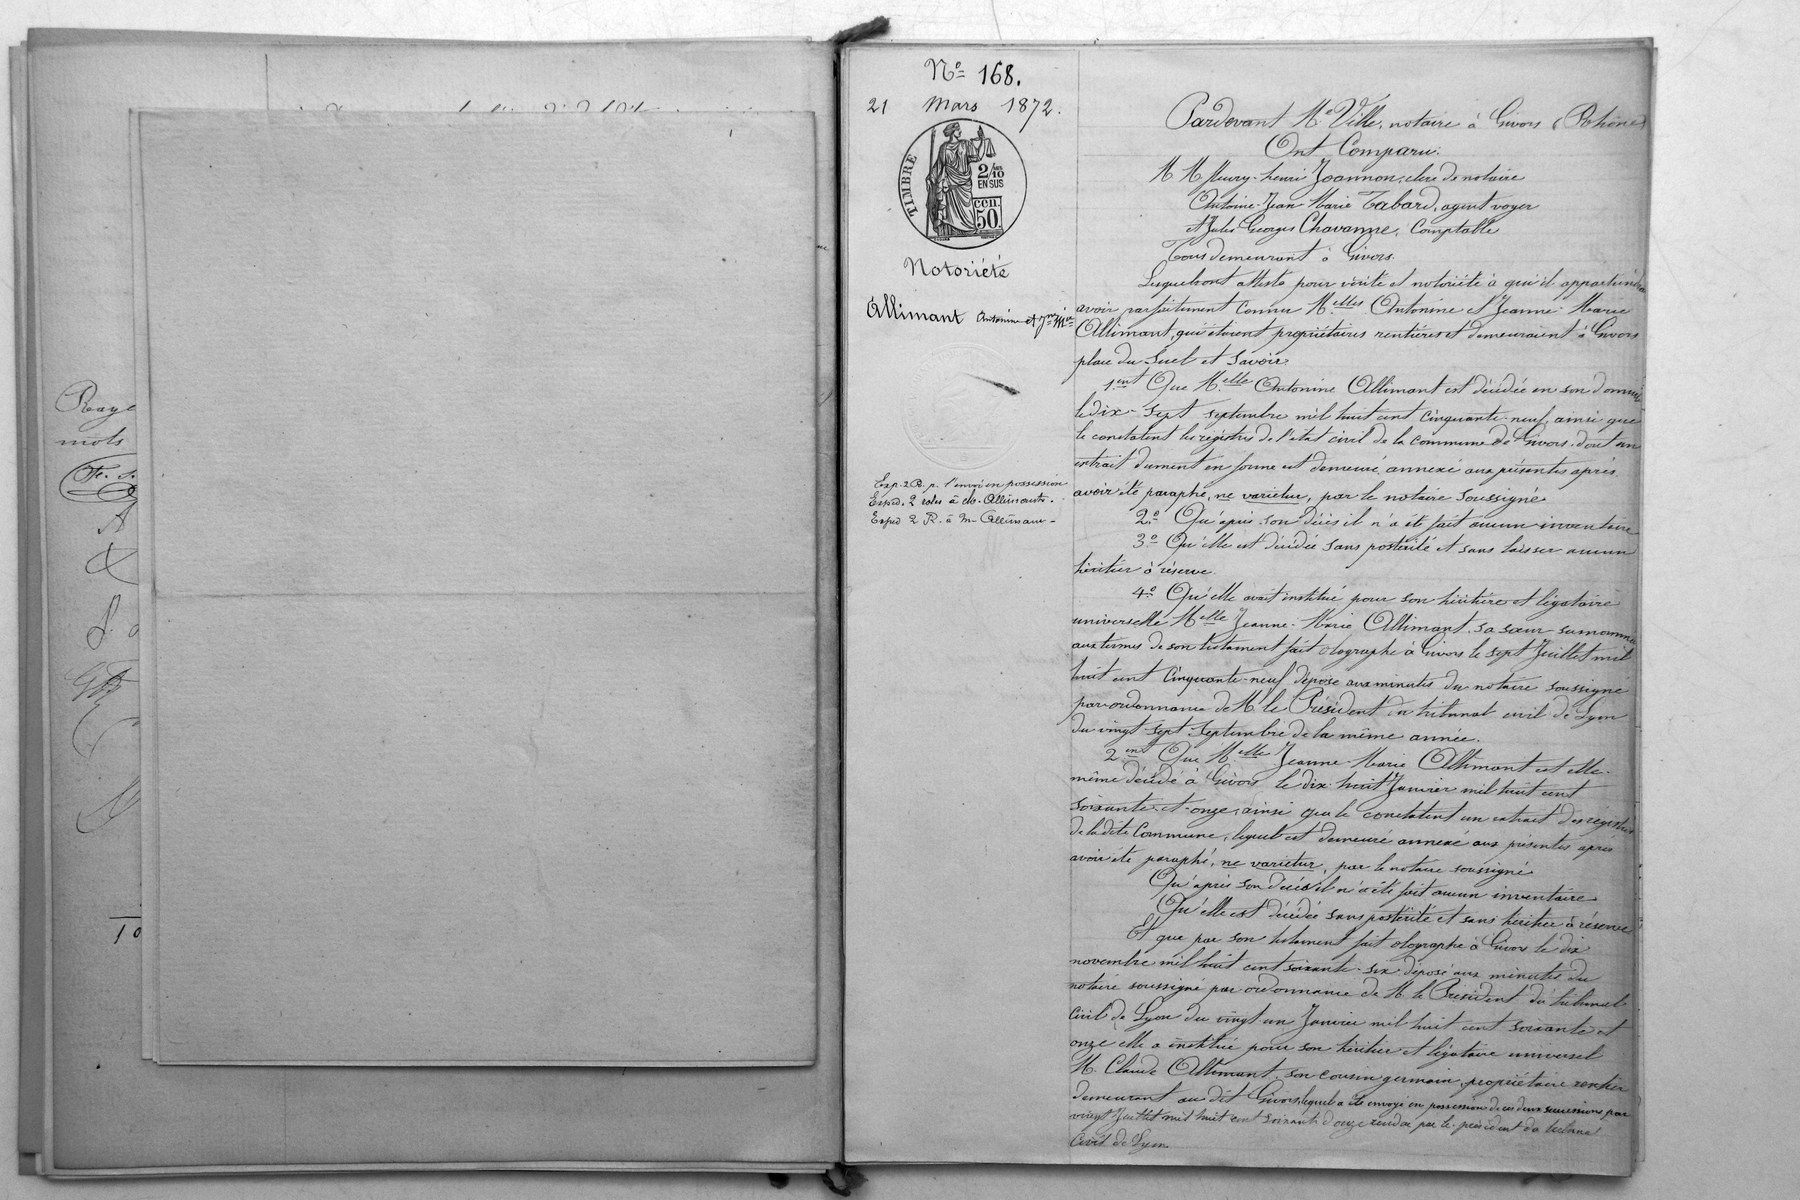 Raye
mots
10
No 168.
21 Mars 1872.
TIMBRE
2/10
EN SUS
cen.
50.
Notoriété
Allimant Antonine et Jne Mie
Exp. 2 R. p. l'envoi en possession
Exped. 2 roles à Me Allimant.
Exped 2 R. à M Allimant
Pardevant Me Ville, notaire à Givors (Rhône)
Ont Comparu:
M M fleury-henri Joannon, clerc de notaire
Antoine-Jean Marie Tabard, agent voyer
et Jules Georges Chavanne, Comptable
Tous demeurant à Givors.
Lesquels ont attesté pour vérité et notoriété à qui il appartiendra
avoir parfaitement connu Melles Antonine et Jeanne-Marie
Allimant, qui étaient propriétaires rentières et demeuraient à Givors
place du Suel et savoir
1ent Que Melle Antonine Allimant est décédée en son domicile
le dix-sept septembre mil huit cent cinquante-neuf, ainsi que
le constatent les registres de l'état civil de la commune de Givors, dont un
extrait dument en forme est demeuré annexé aux présentes après
avoir été paraphé, ne varietur, par le notaire soussigné
2o Qu'après son décès il n'a été fait aucun inventaire
3o Qu'elle est décédée sans postérité et sans laisser aucun
héritier à réserve.
4o Qu'elle avait institué pour son héritière et légataire
universelle Melle Jeanne-Marie Allimant, sa sœur surnommée
aux termes de son testament fait olographe à Givors le sept Juillet mil
huit cent Cinquante-neuf déposé aux minutes du notaire soussigné
par ordonnance de M. le Président du tribunal civil de Lyon
du vingt-sept Septembre de la même année.
2ent Que Melle Jeanne Marie Allimant est elle-
même décédée à Givors le dix-huit Janvier mil huit cent
soixante-et-onze, ainsi que le constatent un extrait des registres
de la dite Commune, lequel est demeuré annexé aux présentes après
avoir été paraphé, ne varietur, par le notaire soussigné
Qu'après son décès il n'a été fait aucun inventaire
Qu'elle est décédée sans postérité et sans héritier à réserve
Et que par son testament fait olographe à Givors le dix
novembre mil huit cent soixante-six déposé aux minutes du
notaire soussigné par ordonnance de M. le Président du tribunal
Civil de Lyon du vingt-un Janvier mil huit cent soixante et
onze elle a institué pour son héritier et légataire universel
M. Claude Allimant, son cousin germain, propriétaire rentier
demeurant au dit Givors, lequel a été envoyé en possession de ces deux successions par
vingt Juillet mil huit cent soixante d'onze rendue par le président du tribunal
Civil de Lyon